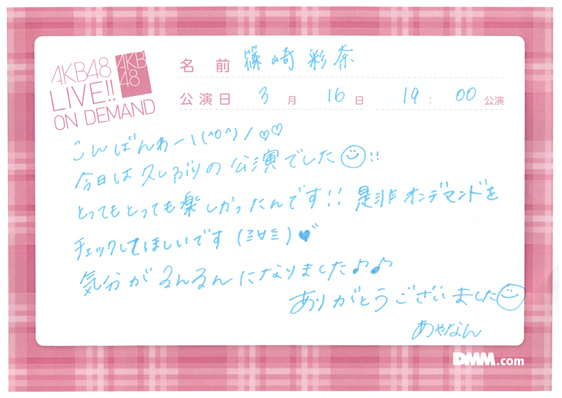 AKB48
LIVE!!
ON DEMAND
AKB
48
名前 篠崎彩奈
公演日 3月 16日 19:00公演
こんばんわー\(^o^)/♡♡
今日は久しぶりの公演でした☺!!
とってもとっても楽しかったんです!! 是非オンデマンドを
チェックしてほしいです(≧∀≦)♥
気分がるんるんになりました♪♪
ありがとうございました☺
あやなん
DMM.com